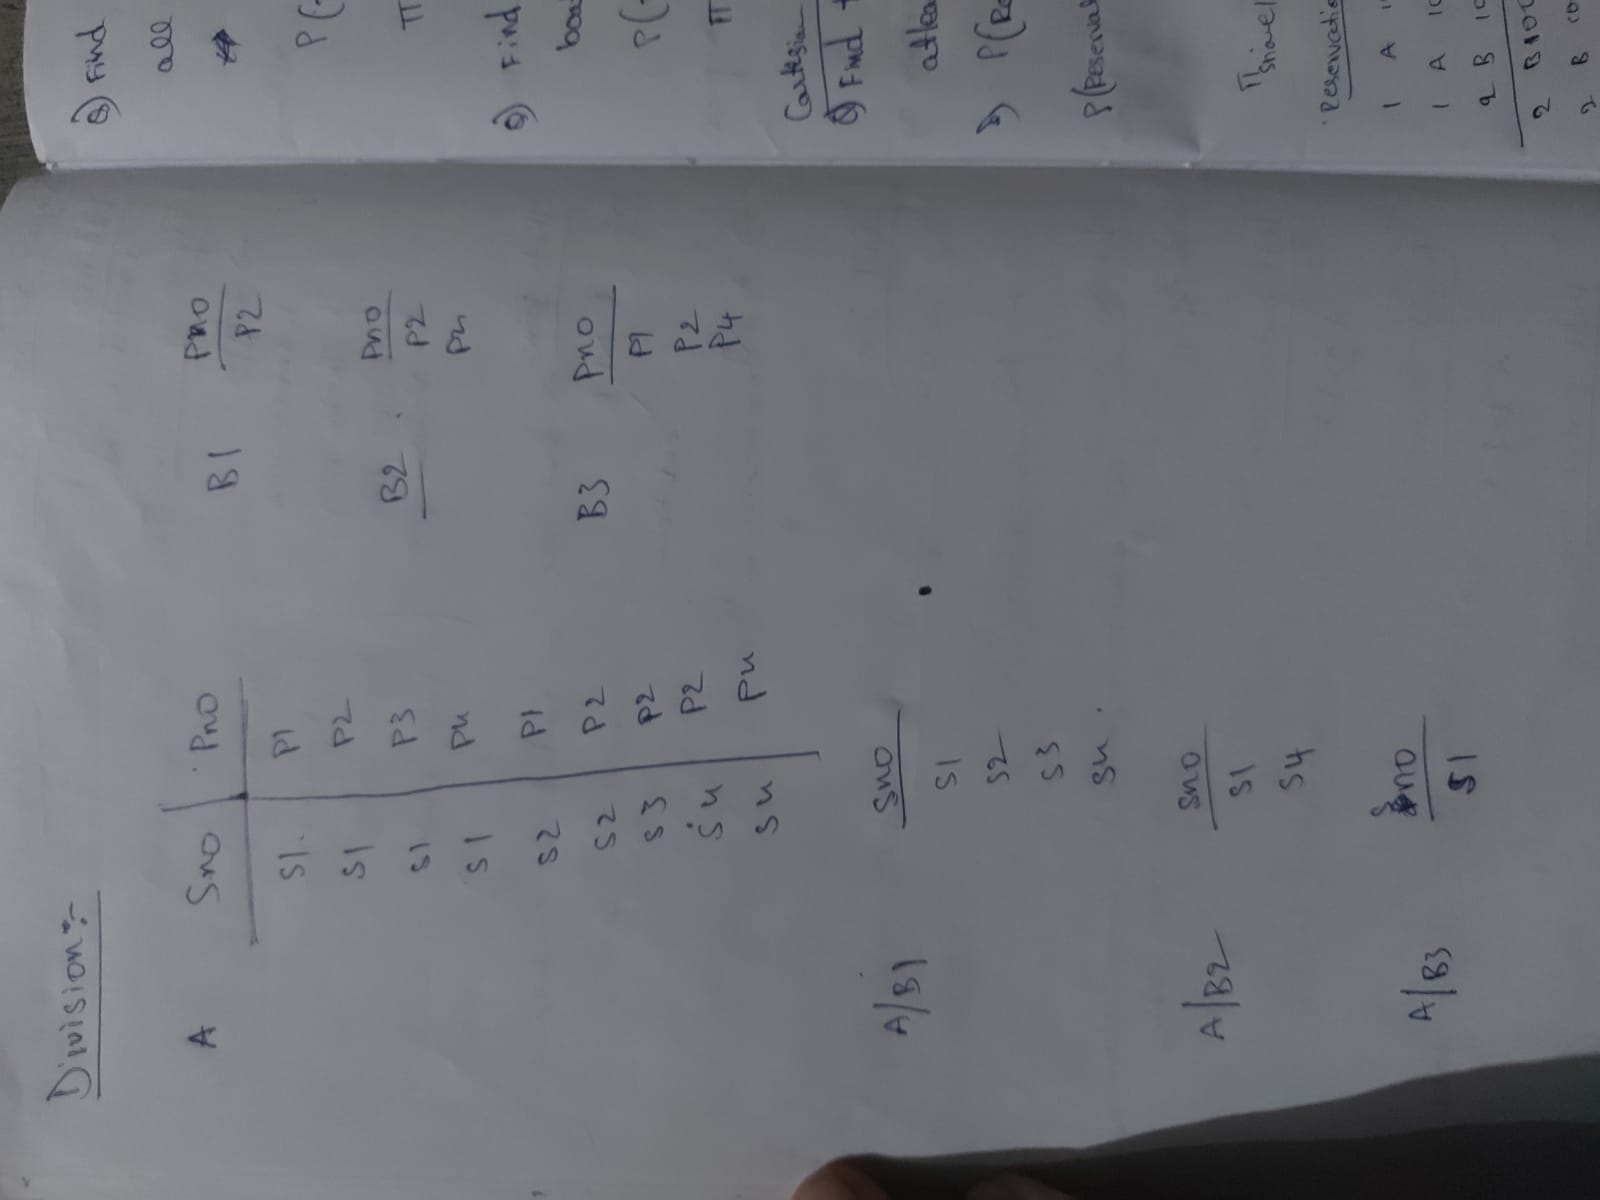 Division:-
A Sno Pno
S1. P1
S1 P2
S1 P3
S1 P4
S2 P1
S2 P2
S3 P2
S4 P2
S4 P4
B1 Pno
P2
B2 Pno
P2
P4
B3 Pno
P1
P2
P4
A/B1 Sno
S1
S2
S3
S4
A/B2 Sno
S1
S4
A/B3 Sno
S1
Q) Find
all
P(
π
Q) Find
P(
π
Cartesian
Q) Find
P(
P(Reserva
π
1 A
1 A 10
2 B 10
2 B 10
2 B